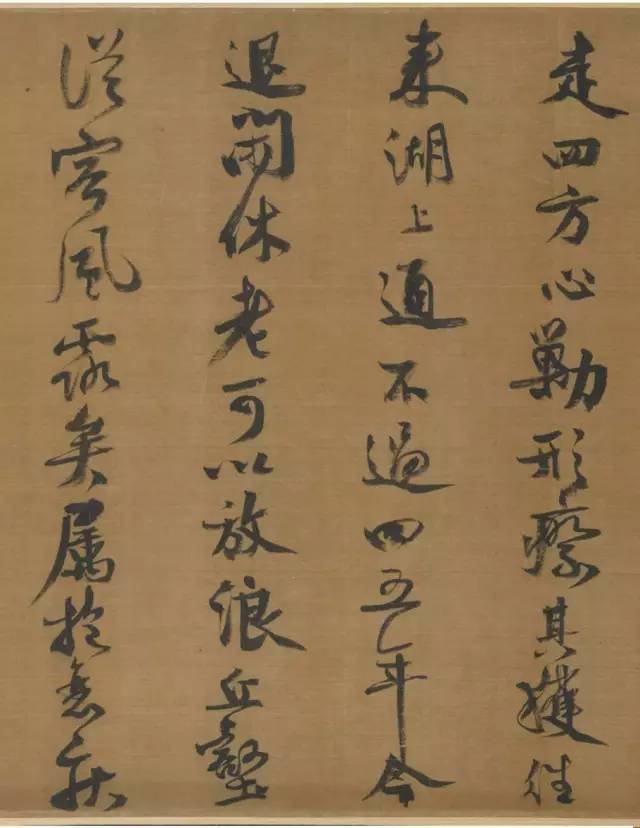 走四方心勤形瘵其獲往
來湖上通不過四五年今
退閒休老可以放浪丘壑
從容風露矣屬抱疾